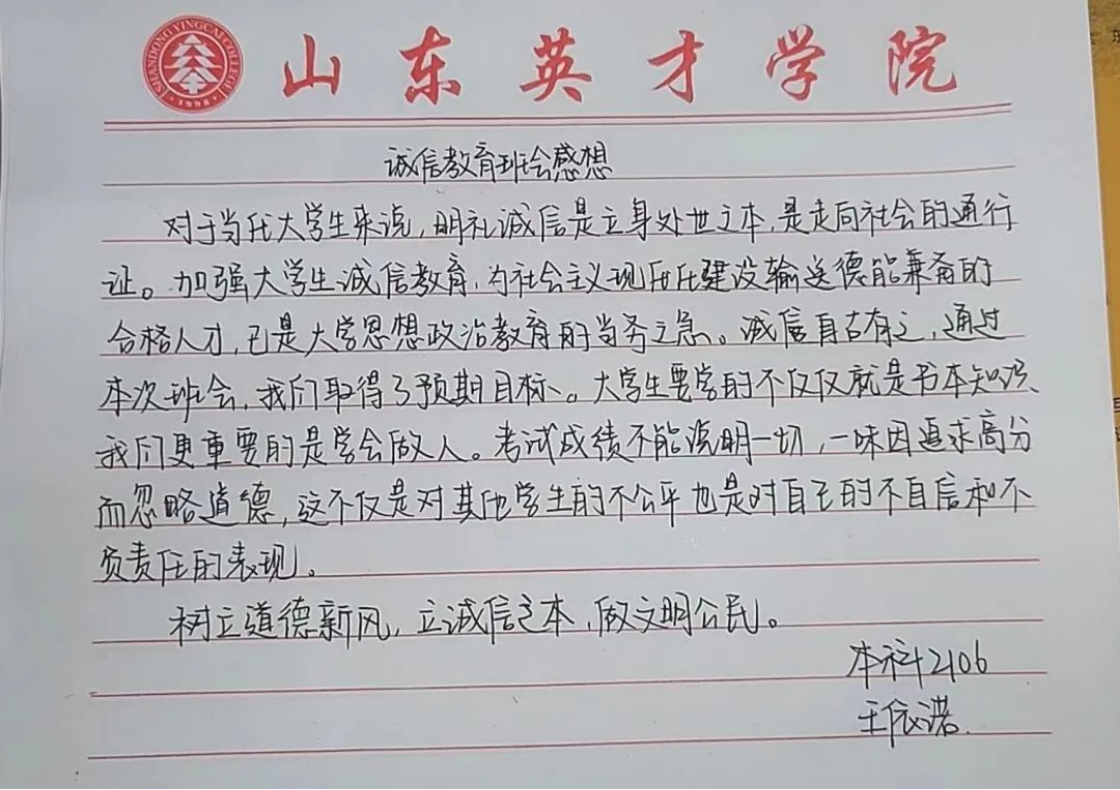 SHANDONG YINGCAI COLLEGE
1998
山东英才学院
诚信教育班会感想
对于当代大学生来说,明礼诚信是立身处世之本,是走向社会的通行
证。加强大学生诚信教育,为社会主义现代化建设输送德能兼备的
合格人才,已是大学思想政治教育的当务之急。诚信自古有之,通过
本次班会,我们取得了预期目标。大学生要学的不仅仅就是书本知识、
我们更重要的是学会做人。考试成绩不能说明一切,一味因追求高分
而忽略道德,这不仅是对其他学生的不公平也是对自己的不自信和不
负责任的表现。
树立道德新风,立诚信之本,做文明公民。
本科2106
王依诺.